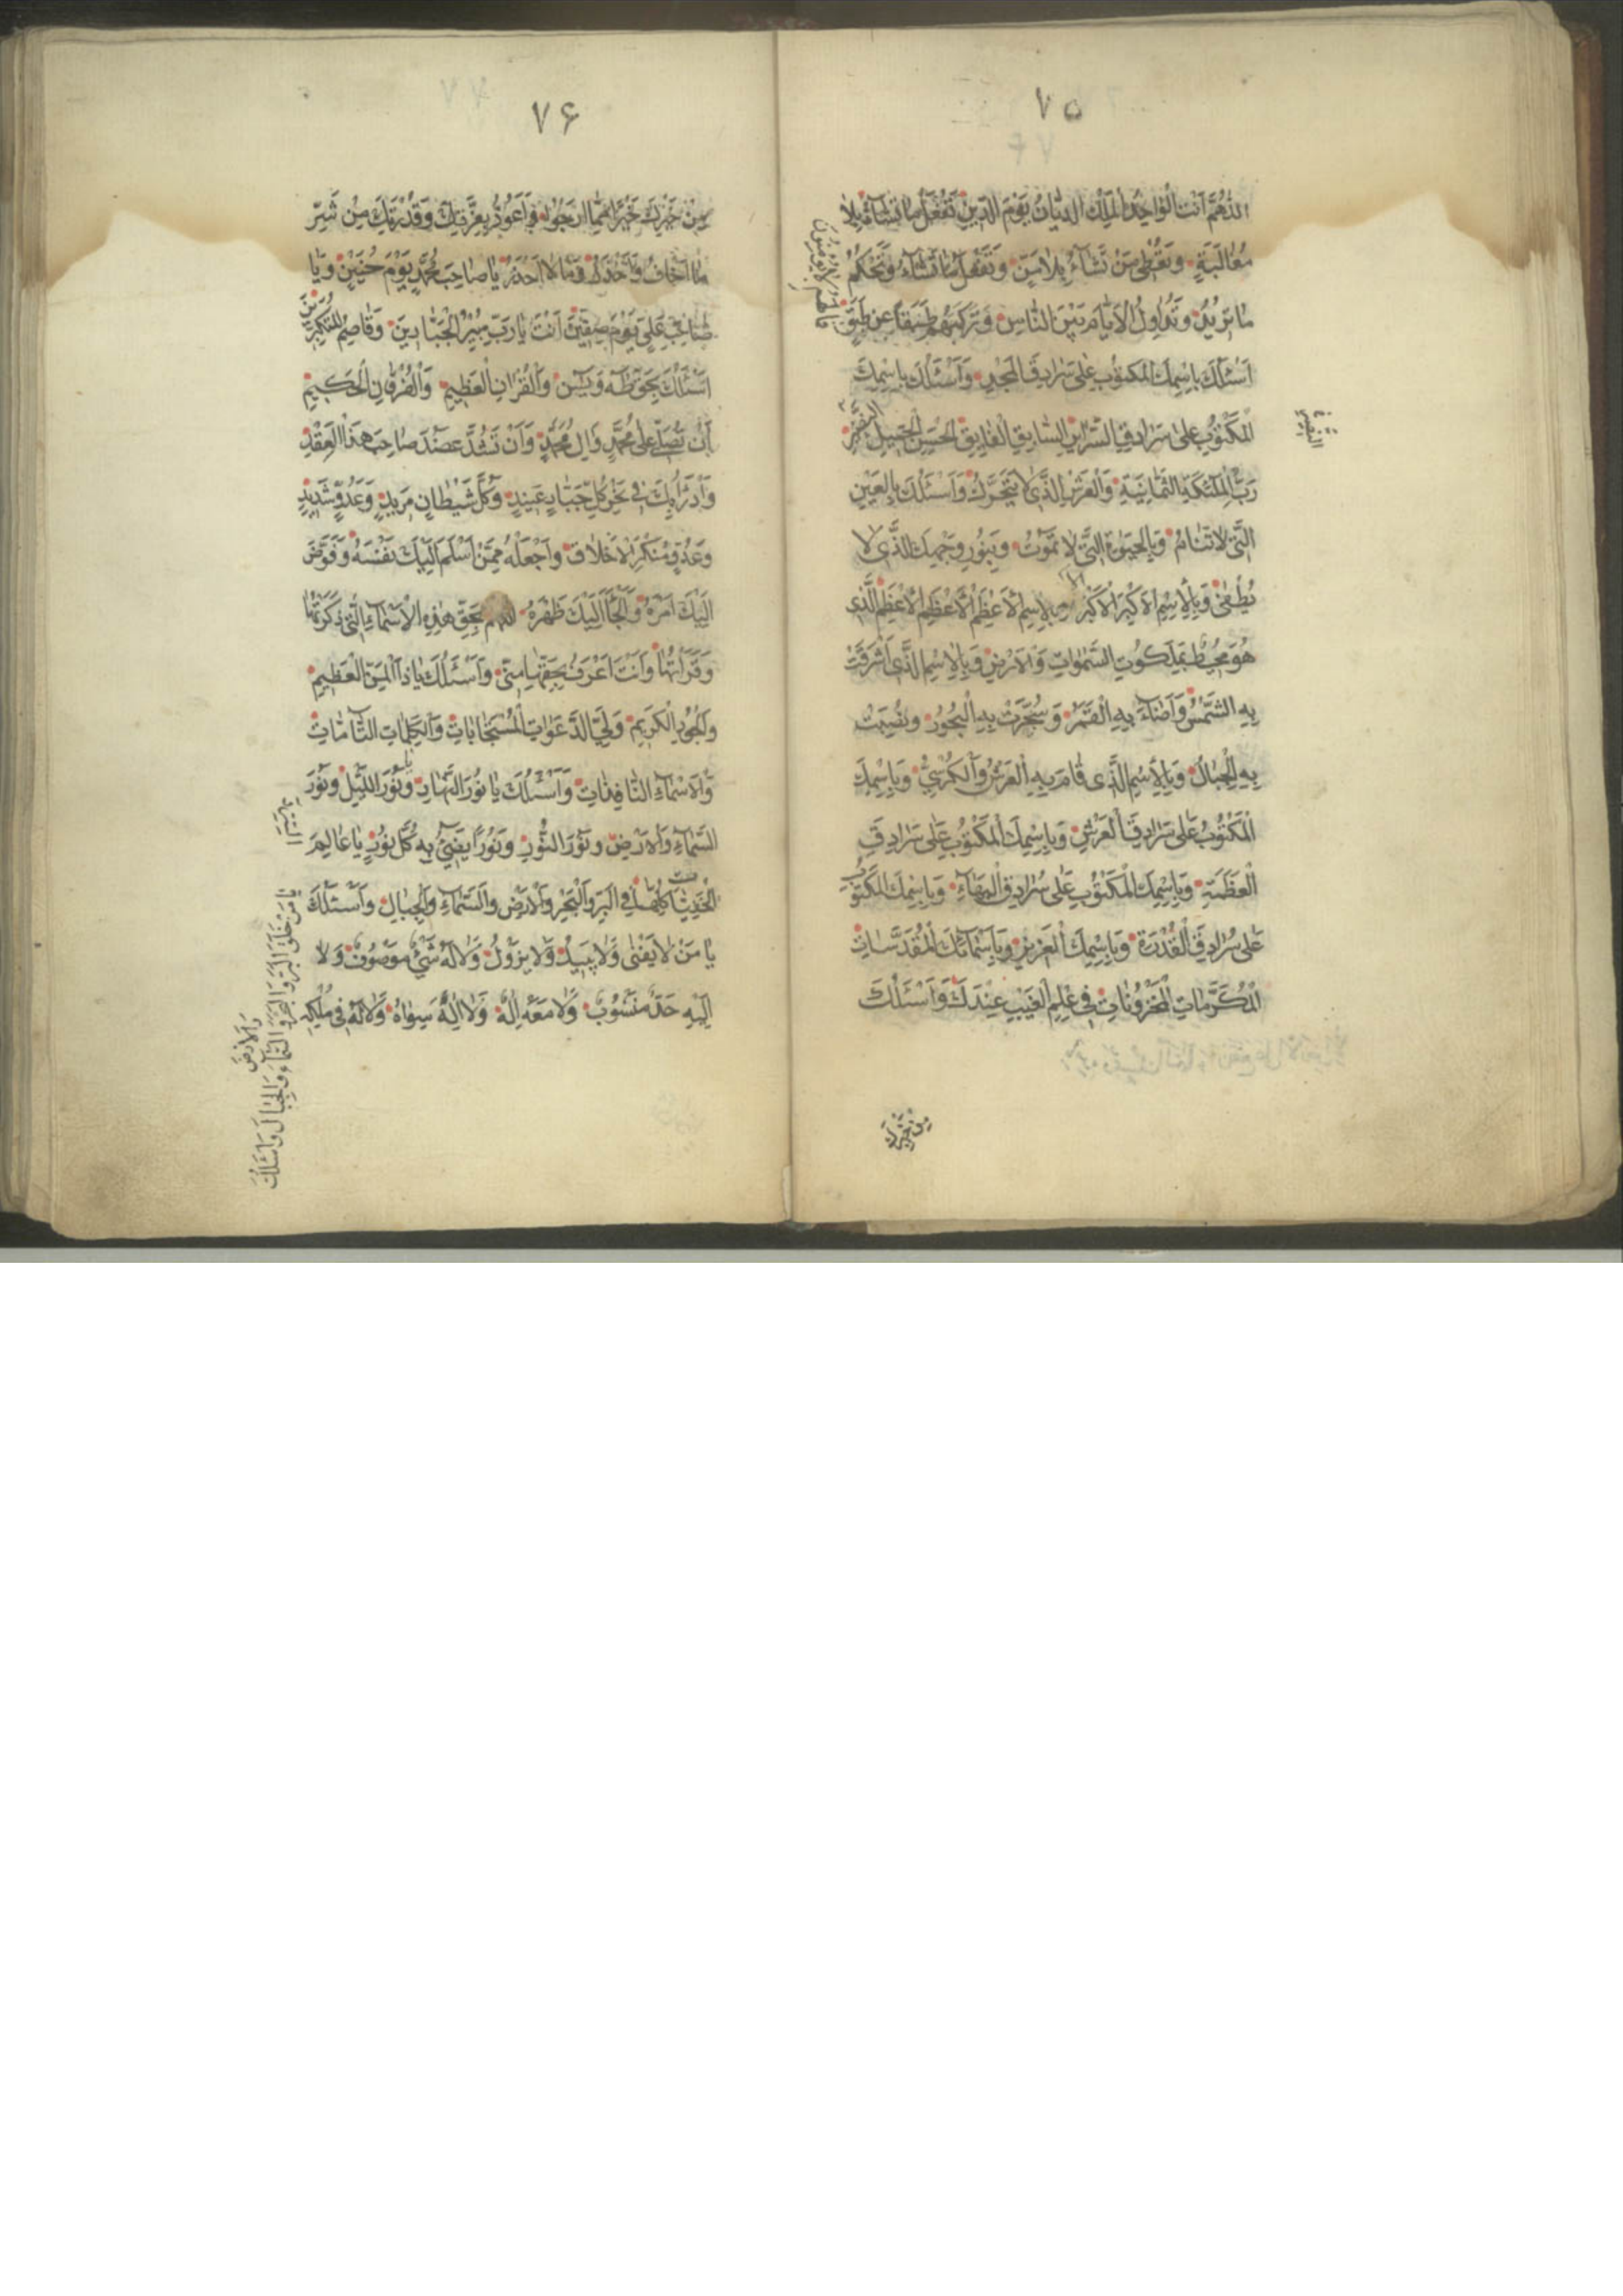 ٧۵
اللهم انت الواحد الملك الديان يوم الدين تفعل ما تشاء بلا
مغالبة وتعطى من تشاء بلا من وتفعل ما تشاء وتحكم
ما تريد وتداول الايام بين الناس وتركبهم طبقا عن طبق
اسئلك باسمك المكتوب على سرادق المجد واسئلك باسمك
المكتوب على سرادق السراير السابق الفايق الحسن الجميل النضير
رب الملئكة الثمانية والعرش الذى لا يتحرك واسئلك بالعين
التى لا تنام وبالحيوة التى لا تموت وبنور وجهك الذى لا
يطفى وبالاسم الاكبر الاكبر وبالاسم الاعظم الاعظم الاعظم الذى
هو محيط بملكوت السموات والارض وبالاسم الذى اشرقت
به الشمس واضاء به القمر وسجرت به البحور ونصبت
به الجبال وبالاسم الذى قام به العرش والكرسى وباسمك
المكتوب على سرادق العرش وباسمك المكتوب على سرادق
العظمة وباسمك المكتوب على سرادق البهاء وباسمك المكتوب
على سرادق القدرة وباسمك العزيز وباسمائك المقدسات
المكرمات المخزونات فى علم الغيب عندك واسئلك
من خيرك
٧۶
من خيرك خيرا مما ارجوا واعوذ بعزتك وقدرتك من شر
ما اخاف واحذر وما لا احذر يا صاحب محمد يوم حنين ويا
صاحب على يوم صفين انت يا رب مبير الجبارين وقاصم المتكبرين
اسئلك بحق طه ويس والقران العظيم والفرقان الحكيم
ان تصلى على محمد وال محمد وان تشد عضد صاحب هذا العقد
وادرأ بك فى نحر كل جبار عنيد وكل شيطان مريد وعدو شديد
وعدو منكر الاخلاق واجعله ممن اسلم اليك نفسه وفوض
اليك امره والجأ اليك ظهره اللهم بحق هذه الاسماء التى ذكرتها
وقرأتها وانت اعرف بحقها منى واسئلك يا ذا المن العظيم
والجود الكريم ولى الدعوات المستجابات والكلمات التامات
والاسماء النافذات واسئلك يا نور النهار ويا نور الليل ونور
السماء والارض ونور النور ونورا يضئ به كل نور يا عالم
الخفيات كلها فى البر والبحر والارض والسماء والجبال واسئلك
يا من لا يفنى ولا يبيد ولا يزول ولا له شئ موصوف ولا
اليه حد منسوب ولا معه اله ولا اله سواه ولا له فى ملكه
يا من خلق البر والبحر والسماء والجبال واسئلك
والارض